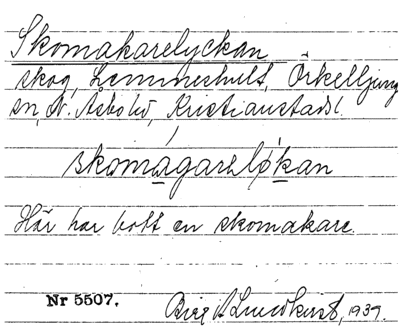 Skomakarelyckan
skog, Lemmeshult, Örkelljunga
sn, N. Åsbohd, Kristianstads l.
skomagarelykan
Här har bott en skomakare.
Nr 5507. Birgit Lundkvist, 1939.